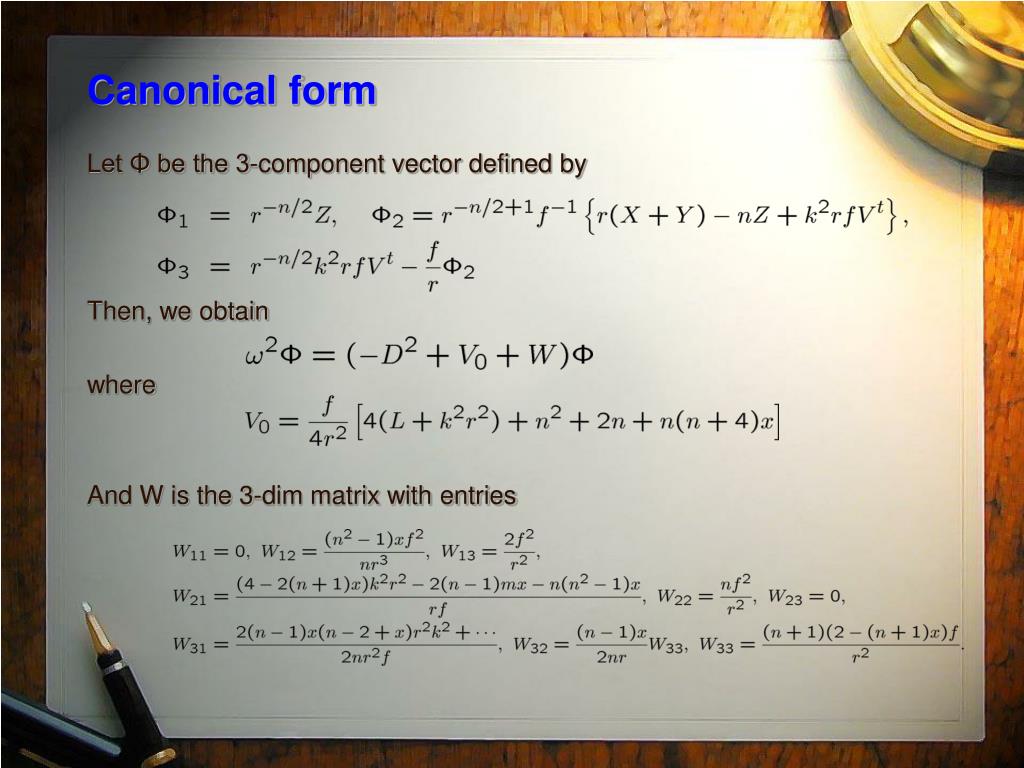 Canonical form
Let Φ be the 3-component vector defined by
Φ₁ = r^{-n/2}Z, Φ₂ = r^{-n/2+1}f^{-1}{r(X + Y) − nZ + k²rfV^t},
Φ₃ = r^{-n/2}k²rfV^t − \frac{f}{r}Φ₂
Then, we obtain
ω²Φ = (−D² + V₀ + W)Φ
where
V₀ = \frac{f}{4r²}[4(L + k²r²) + n² + 2n + n(n + 4)x]
And W is the 3-dim matrix with entries
W₁₁ = 0, W₁₂ = \frac{(n² − 1)xf²}{nr³}, W₁₃ = \frac{2f²}{r²},
W₂₁ = \frac{(4 − 2(n + 1)x)k²r² − 2(n − 1)mx − n(n² − 1)x}{rf}, W₂₂ = \frac{nf²}{r²}, W₂₃ = 0,
W₃₁ = \frac{2(n − 1)x(n − 2 + x)r²k² + ⋯}{2nr²f}, W₃₂ = \frac{(n − 1)x}{2nr}W₃₃, W₃₃ = \frac{(n + 1)(2 − (n + 1)x)f}{r²}.